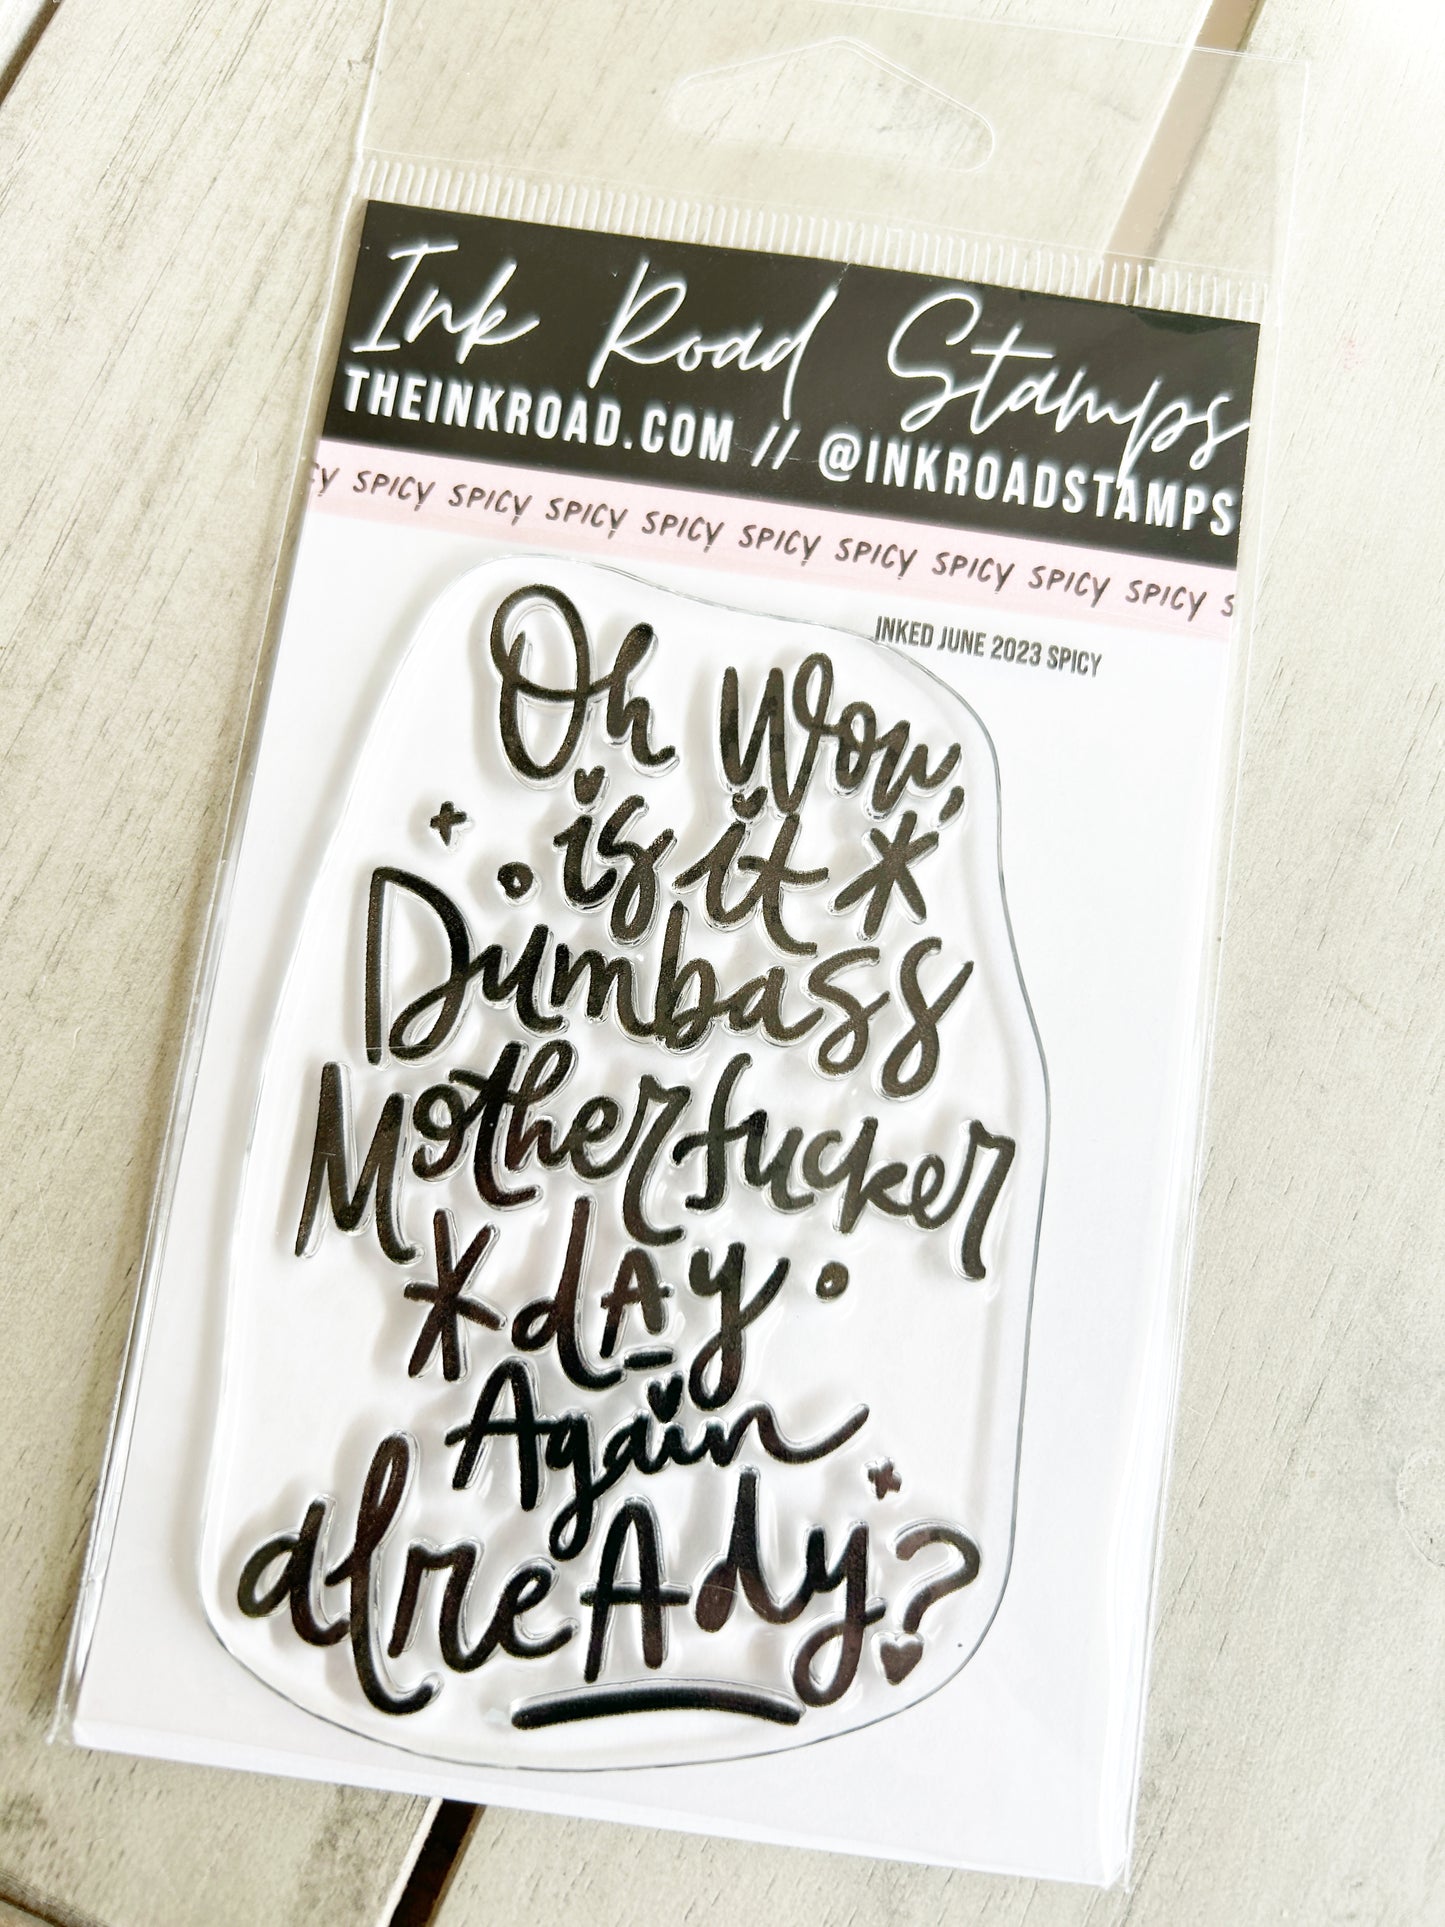 Ink Road Stamps
THEINKROAD.COM // @INKROADSTAMPS
CY SPICY SPICY SPICY SPICY SPICY SPICY SPICY SPICY SPICY S
INKED JUNE 2023 SPICY
Oh Wow,
is it *
Dumbass
Motherfucker
*dAy
Again
alreAdy?